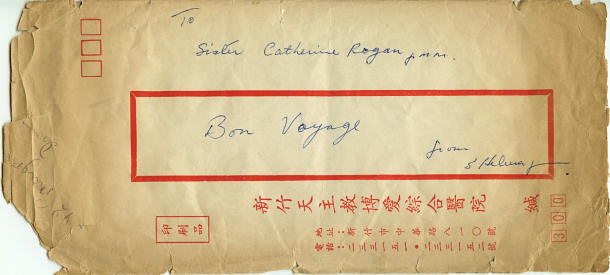 To
Sister Catherine Rogan pmm.
Bon Voyage
from
新竹天主教博愛綜合醫院 緘
地址：新竹市中華路八一〇號
電話：二三三一五一•二三三一五二號
印刷品
300